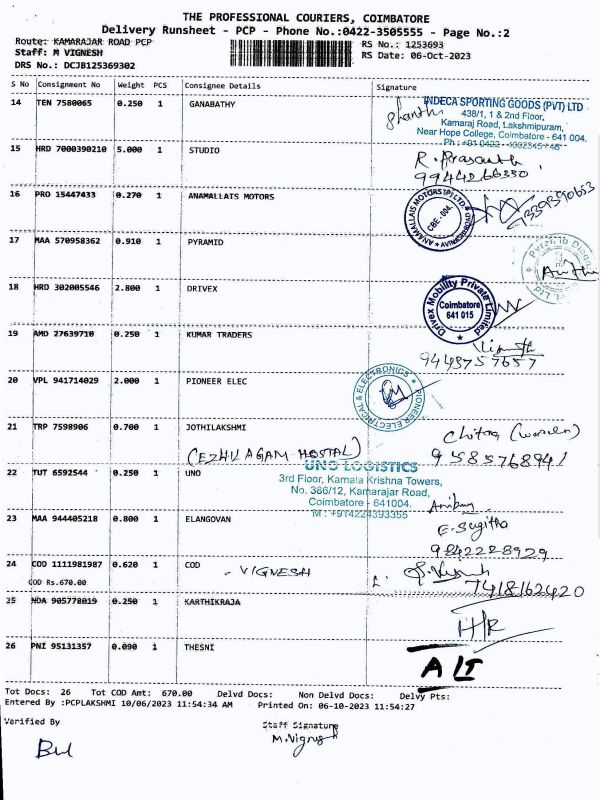 THE PROFESSIONAL COURIERS, COIMBATORE
Delivery Runsheet - PCP - Phone No.:0422-3505555 - Page No.:2
Route: KAMARAJAR ROAD PCP
RS No.: 1253693
Staff: M VIGNESH
RS Date: 06-Oct-2023
DRS No.: DCJB125369302
S No Consignment No Weight PCS Consignee Details Signature
14 TEN 7580065 0.250 1 GANABATHY
INDECA SPORTING GOODS (PVT) LTD
438/1, 1 & 2nd Floor,
Kamaraj Road, Lakshmipuram,
Near Hope College, Coimbatore - 641 004.
15 HRD 7000390210 5.000 1 STUDIO
R. Prasanth
16 PRO 15447433 0.270 1 ANAMALLAIS MOTORS
ANAMALLAIS MOTORS (P) LTD
CBE-004.
17 MAA 570958362 0.910 1 PYRAMID
18 HRD 302005546 2.800 1 DRIVEX
Drivex Mobility Private Limited
Coimbatore
641 015
19 AMD 27639710 0.250 1 KUMAR TRADERS
9443757657
20 VPL 941714029 2.000 1 PIONEER ELEC
PIONEER ELECTRICAL & ELECTRONICS
21 TRP 7598906 0.700 1 JOTHILAKSHMI
Chitra (warden)
(EZHILAGAM HOSTAL)
9585768941
22 TUT 6592544 0.250 1 UNO
UNO LOGISTICS
3rd Floor, Kamala Krishna Towers,
No. 386/12, Kamarajar Road,
Coimbatore - 641004.
M : +914224393355
23 MAA 944405218 0.800 1 ELANGOVAN
E. Sugitha
9842228929
24 COD 1111981987 0.620 1 COD
- VIGNESH
COD Rs.670.00
7418162420
25 NDA 905778019 0.250 1 KARTHIKRAJA
H/R
26 PNI 95131357 0.090 1 THESNI
Tot Docs: 26 Tot COD Amt: 670.00 Delvd Docs: Non Delvd Docs: Delvy Pts:
Entered By :PCPLAKSHMI 10/06/2023 11:54:34 AM Printed On: 06-10-2023 11:54:27
Verified By
Staff Signature
M.Vignesh